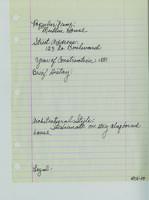 Popular Name:
Mullen House
Street Address:
129 So. Boulevard
Year of Construction: 1881
Brief History:
Architectural Style:
Italianate on big clapboard
house
Legal: